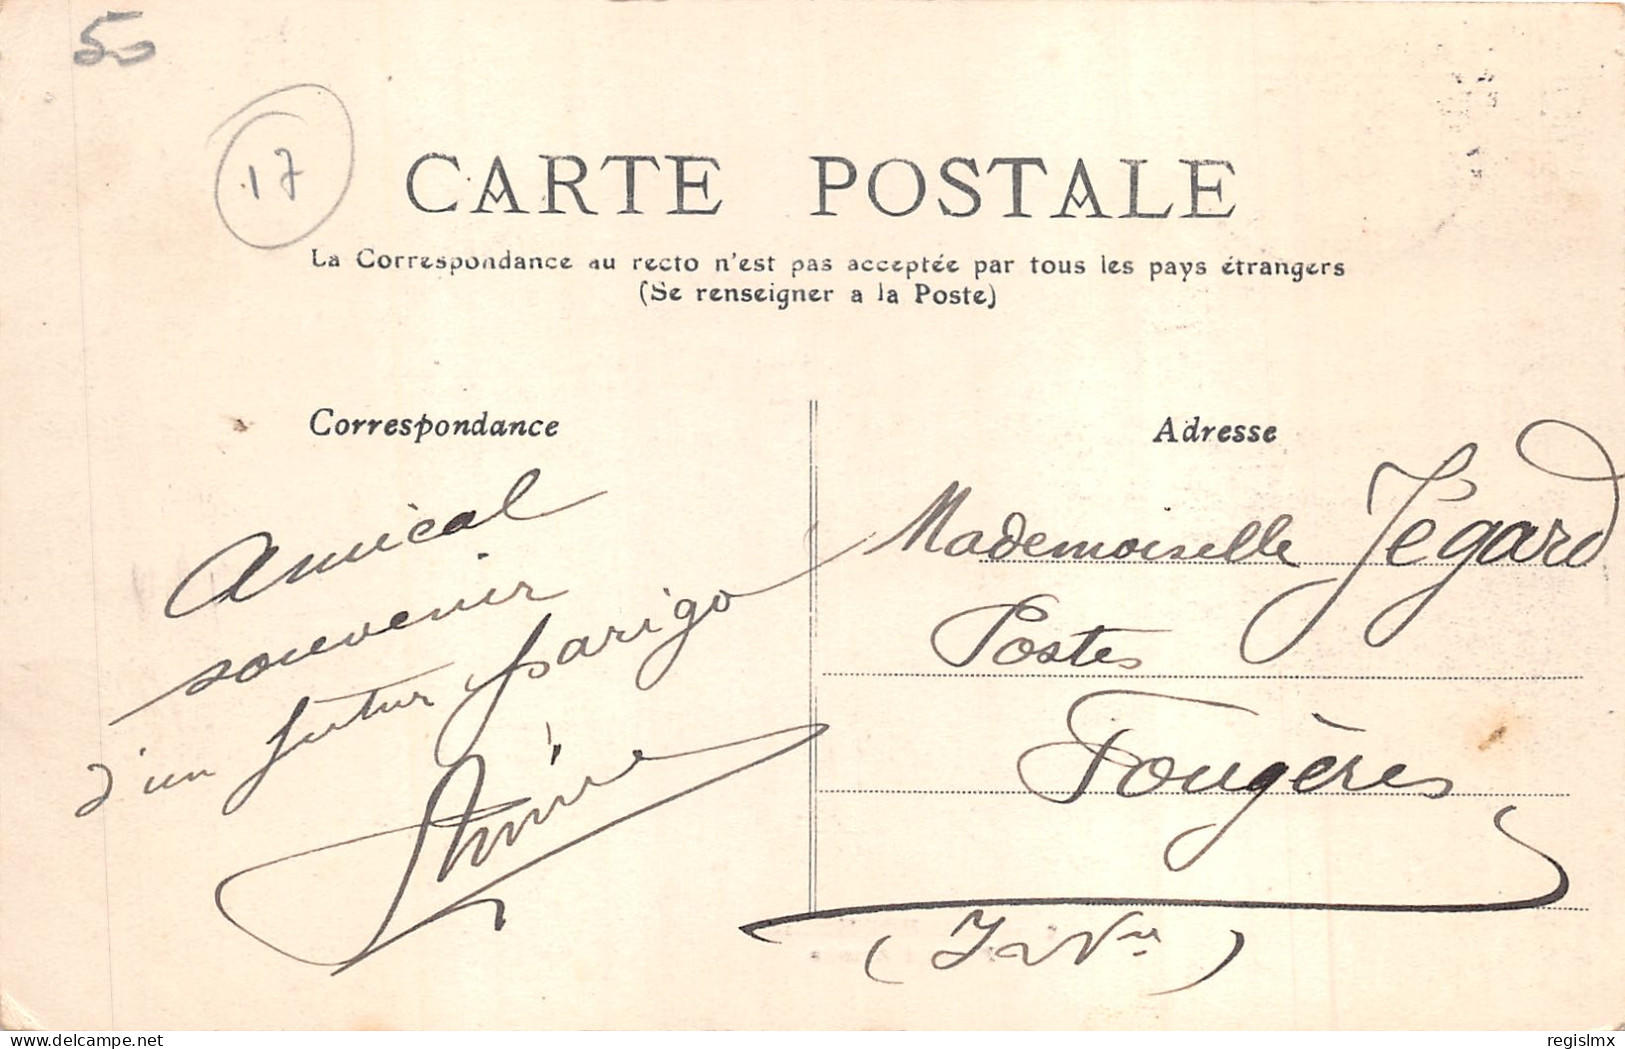 50
17
CARTE POSTALE
La Correspondance au recto n'est pas acceptée par tous les pays étrangers
(Se renseigner a la Poste)
Correspondance
Amical
souvenir
d'un futur parigo
Adresse
Mademoiselle Jégard
Postes
Fougères
(I et Vne)
delcampe.net
regislmx